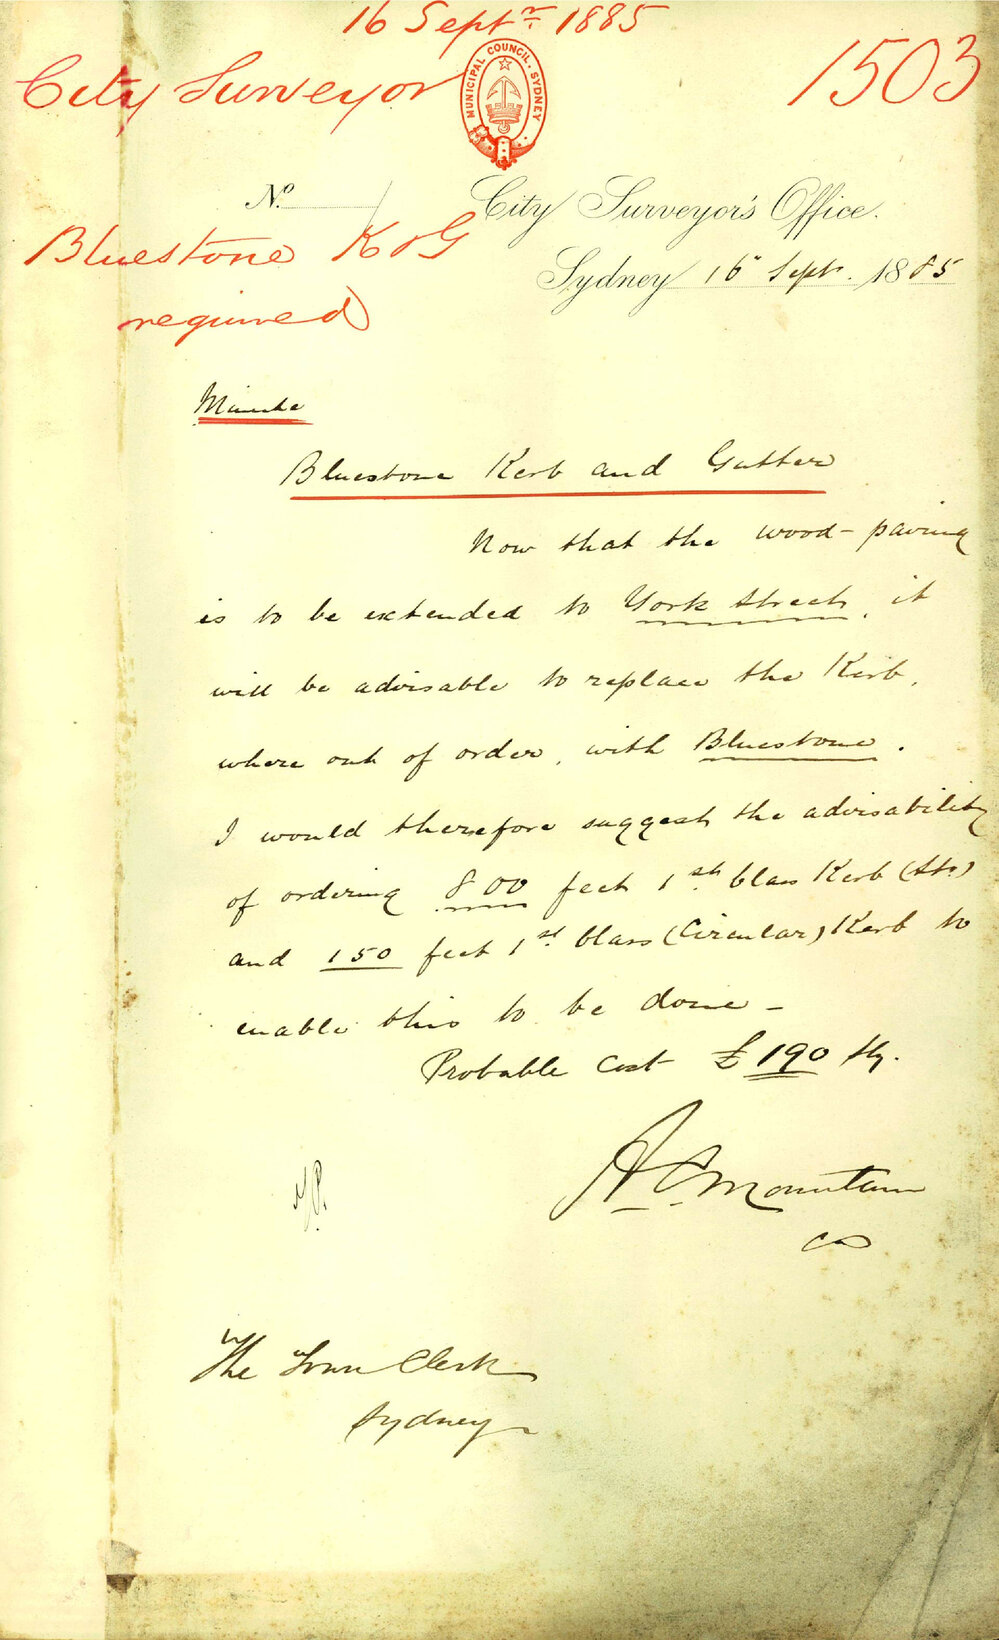 16 Septr. 1885
City Surveyor
MUNICIPAL COUNCIL. SYDNEY
1503
No.
City Surveyor's Office.
Bluestone K & G
required
Sydney 16 Sept. 1885
Minute
Bluestone Kerb and Gutter
Now that the wood-paving
is to be extended to York Street, it
will be advisable to replace the Kerb,
where out of order, with Bluestone.
I would therefore suggest the advisability
of ordering 800 feet 1st Class Kerb (St.)
and 150 feet 1st Class (Circular) Kerb to
enable this to be done -
Probable Cost £190 Stg.
A C Mountain
CS
The Town Clerk
Sydney